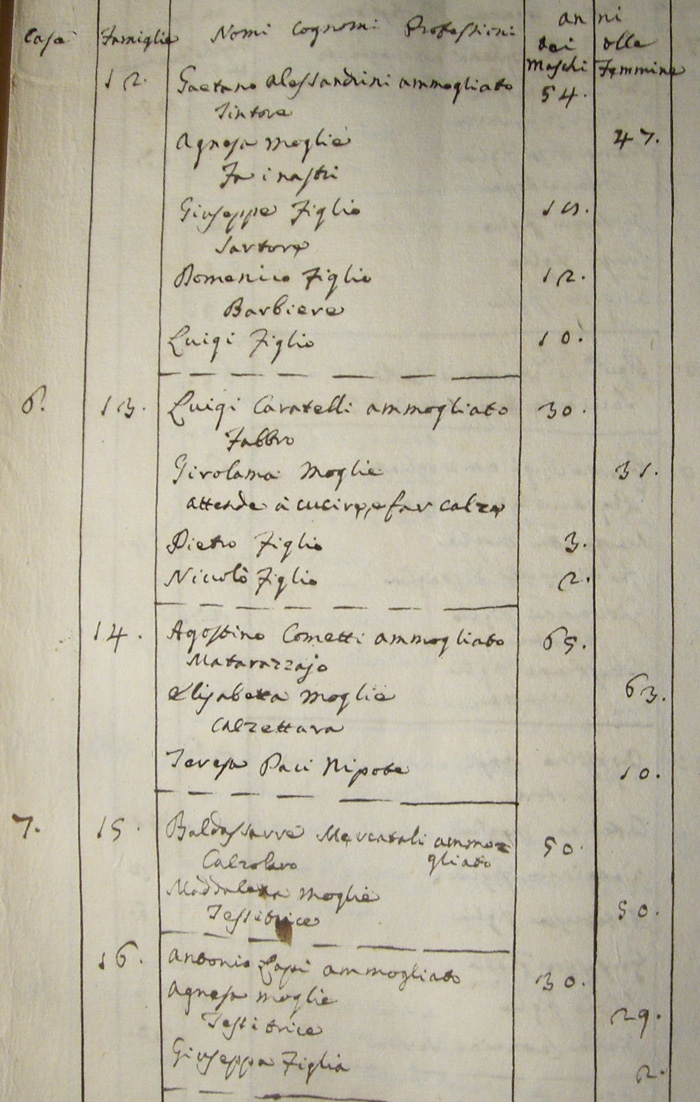 Case Famiglie Nomi Cognomi Professioni anni
dei delle
Maschi Femmine
12. Gaetano Alessandrini ammogliato 54.
Tintore
Agnesa Moglie 47.
Fa i nastri
Giuseppe Figlio
Sartore
Domenico Figlio 12.
Barbiere
Luigi Figlio 10.
6. 13. Luigi Caratelli ammogliato 30.
Fabbro
Girolama Moglie 31.
attende à cucire, e far calze
Pietro Figlio 3.
Niccolò Figlio 2.
14. Agostino Cometti ammogliato 65.
Matarazzajo
Elisabetta Moglie 63.
Calzettara
Teresa Paci Nipote 10.
7. 15. Baldassarre Mercatali ammo= 50.
Calzolaro gliato
Maddalena Moglie 50.
Tessitrice
16. Antonio Lapi ammogliato 30.
Agnesa Moglie
Tessitrice 29.
Giuseppa Figlia 2.